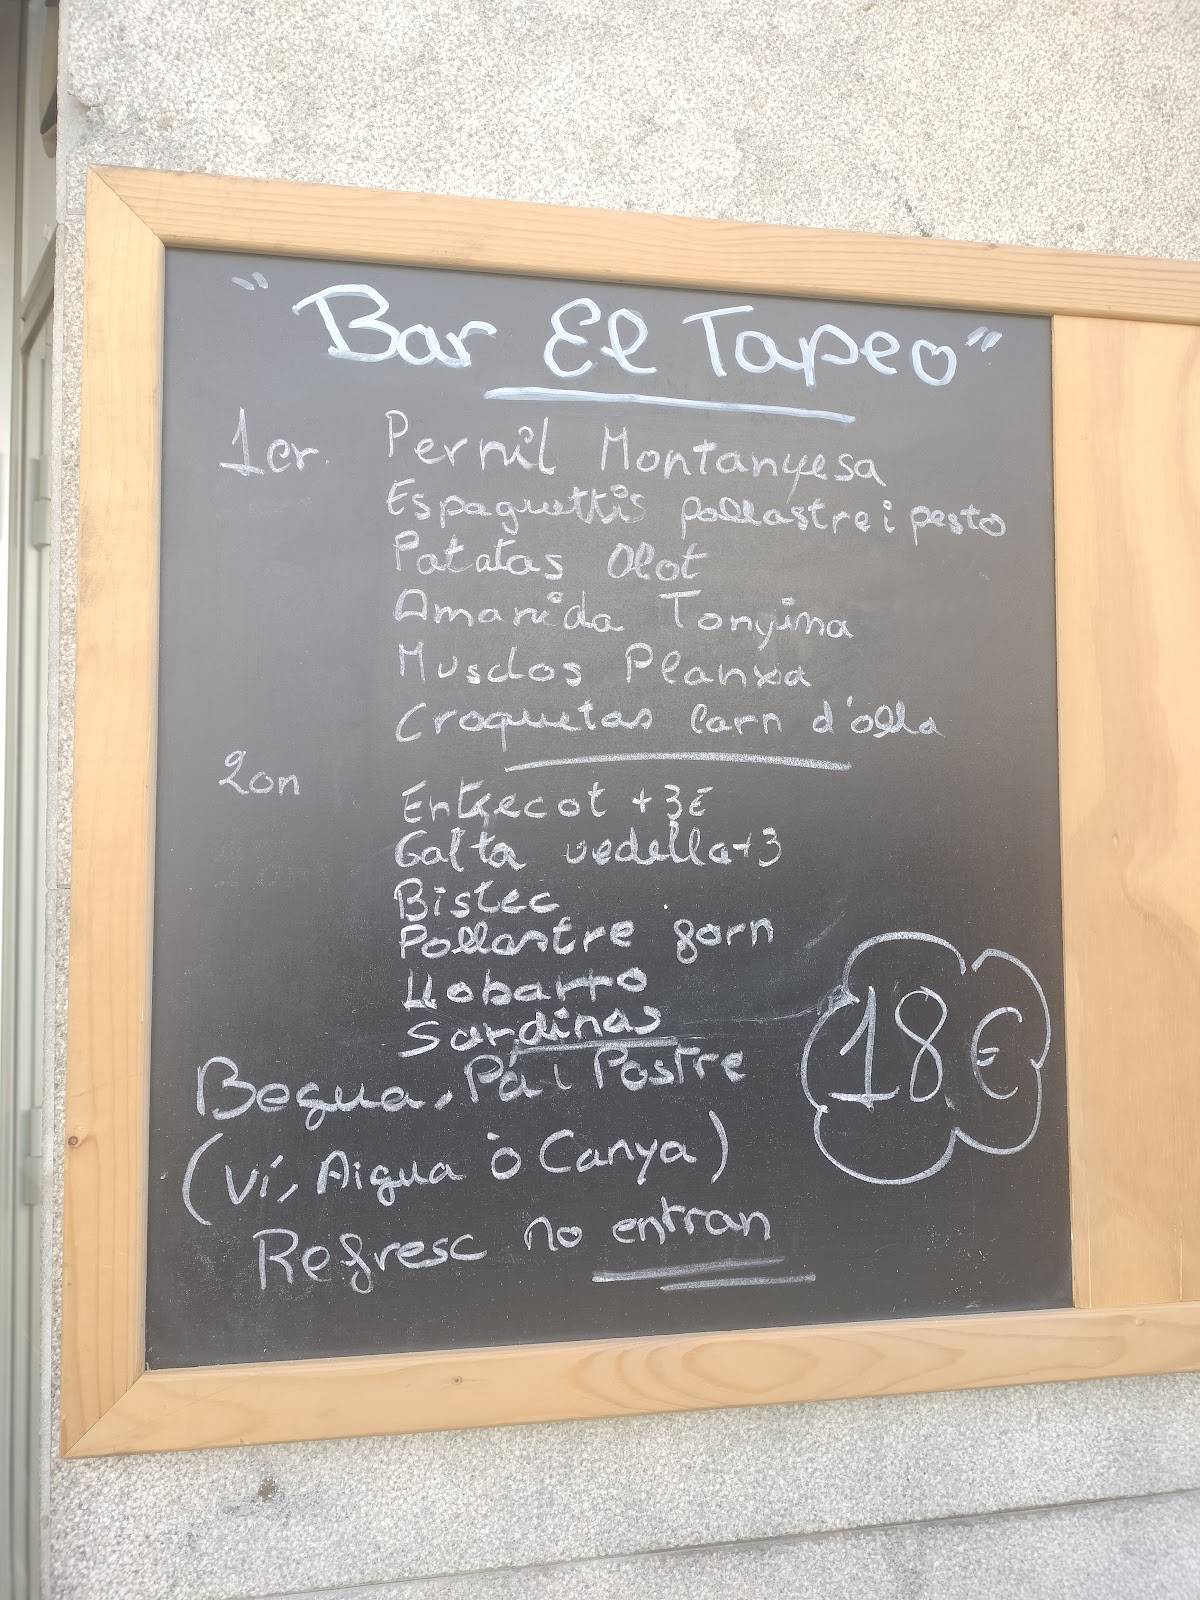 "Bar El Tapeo"
1er. Pernil Montanyesa
Espaguettis pollastre i pesto
Patatas Olot
Amanida Tonyina
Musclos Planxa
Croquetas Carn d'olla
2on Entrecot +3€
Galta vedella+3
Bistec
Pollastre forn
Llobarro
Sardinas
Begua, Pà i Postre
18€
(Ví, Aigua ò Canya)
Refresc no entran